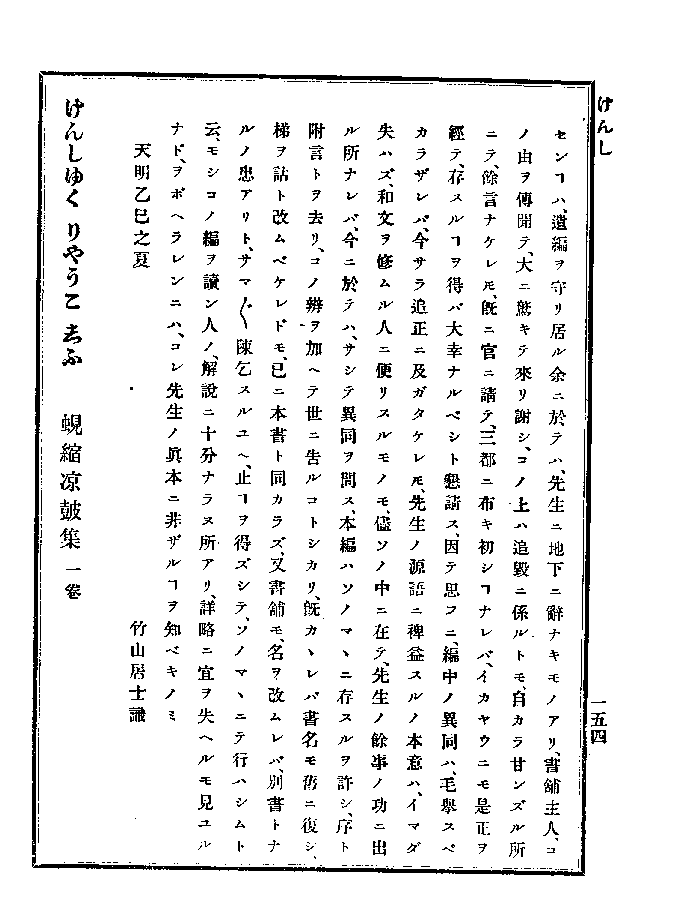 けんし
一五四
センヿハ、遺編ヲ守リ居ル余ニ於テハ、先生ニ地下ニ辭ナキモノアリ、書舖主人、コ
ノ由ヲ傳聞テ、大ニ驚キテ來リ謝シ、コノ上ハ追毀ニ係ルトモ、自カラ甘ンズル所
ニテ、餘言ナケレ𪜈、旣ニ官ニ請テ、三都ニ布キ初シヿナレバ、イカヤウニモ是正ヲ
經テ、存スルヿヲ得バ大幸ナルベシト懇請ス、因テ思フニ、編中ノ異同ハ、毛擧スベ
カラザレバ、今サラ追正ニ及ガタケレ𪜈、先生ノ源語ニ稗益スルノ本意ハ、イマダ
失ハズ、和文ヲ修ムル人ニ便リスルモノモ、儘ソノ中ニ在テ、先生ノ餘事ノ功ニ出
ル所ナレバ、今ニ於テハ、サシテ異同ヲ問ス、本編ハソノマヽニ存スルヲ許シ、序ト
附言トヲ去リ、コノ辨ヲ加ヘテ世ニ告ルコトシカリ、旣カヽレバ書名モ舊ニ復シ、
梯ヲ詁ト改ムベケレドモ、已ニ本書ト同カラズ、又書舖モ、名ヲ改ムレバ、別書トナ
ルノ患アリト、サマ〴〵陳乞スルユヘ、止ヿヲ得ズシテ、ソノマヽニテ行ハシムト
云、モシコノ編ヲ讀ン人ノ、解説ニ十分ナラヌ所アリ、詳略ニ宜ヲ失ヘルモ見ユル
ナド、ヲボヘラレンニハ、コレ先生ノ眞本ニ非ザルヿヲ知ベキノミ
天明乙巳之夏　竹山居士識
けんしゆくりやうこ志ふ　蜆縮凉鼓集 一卷